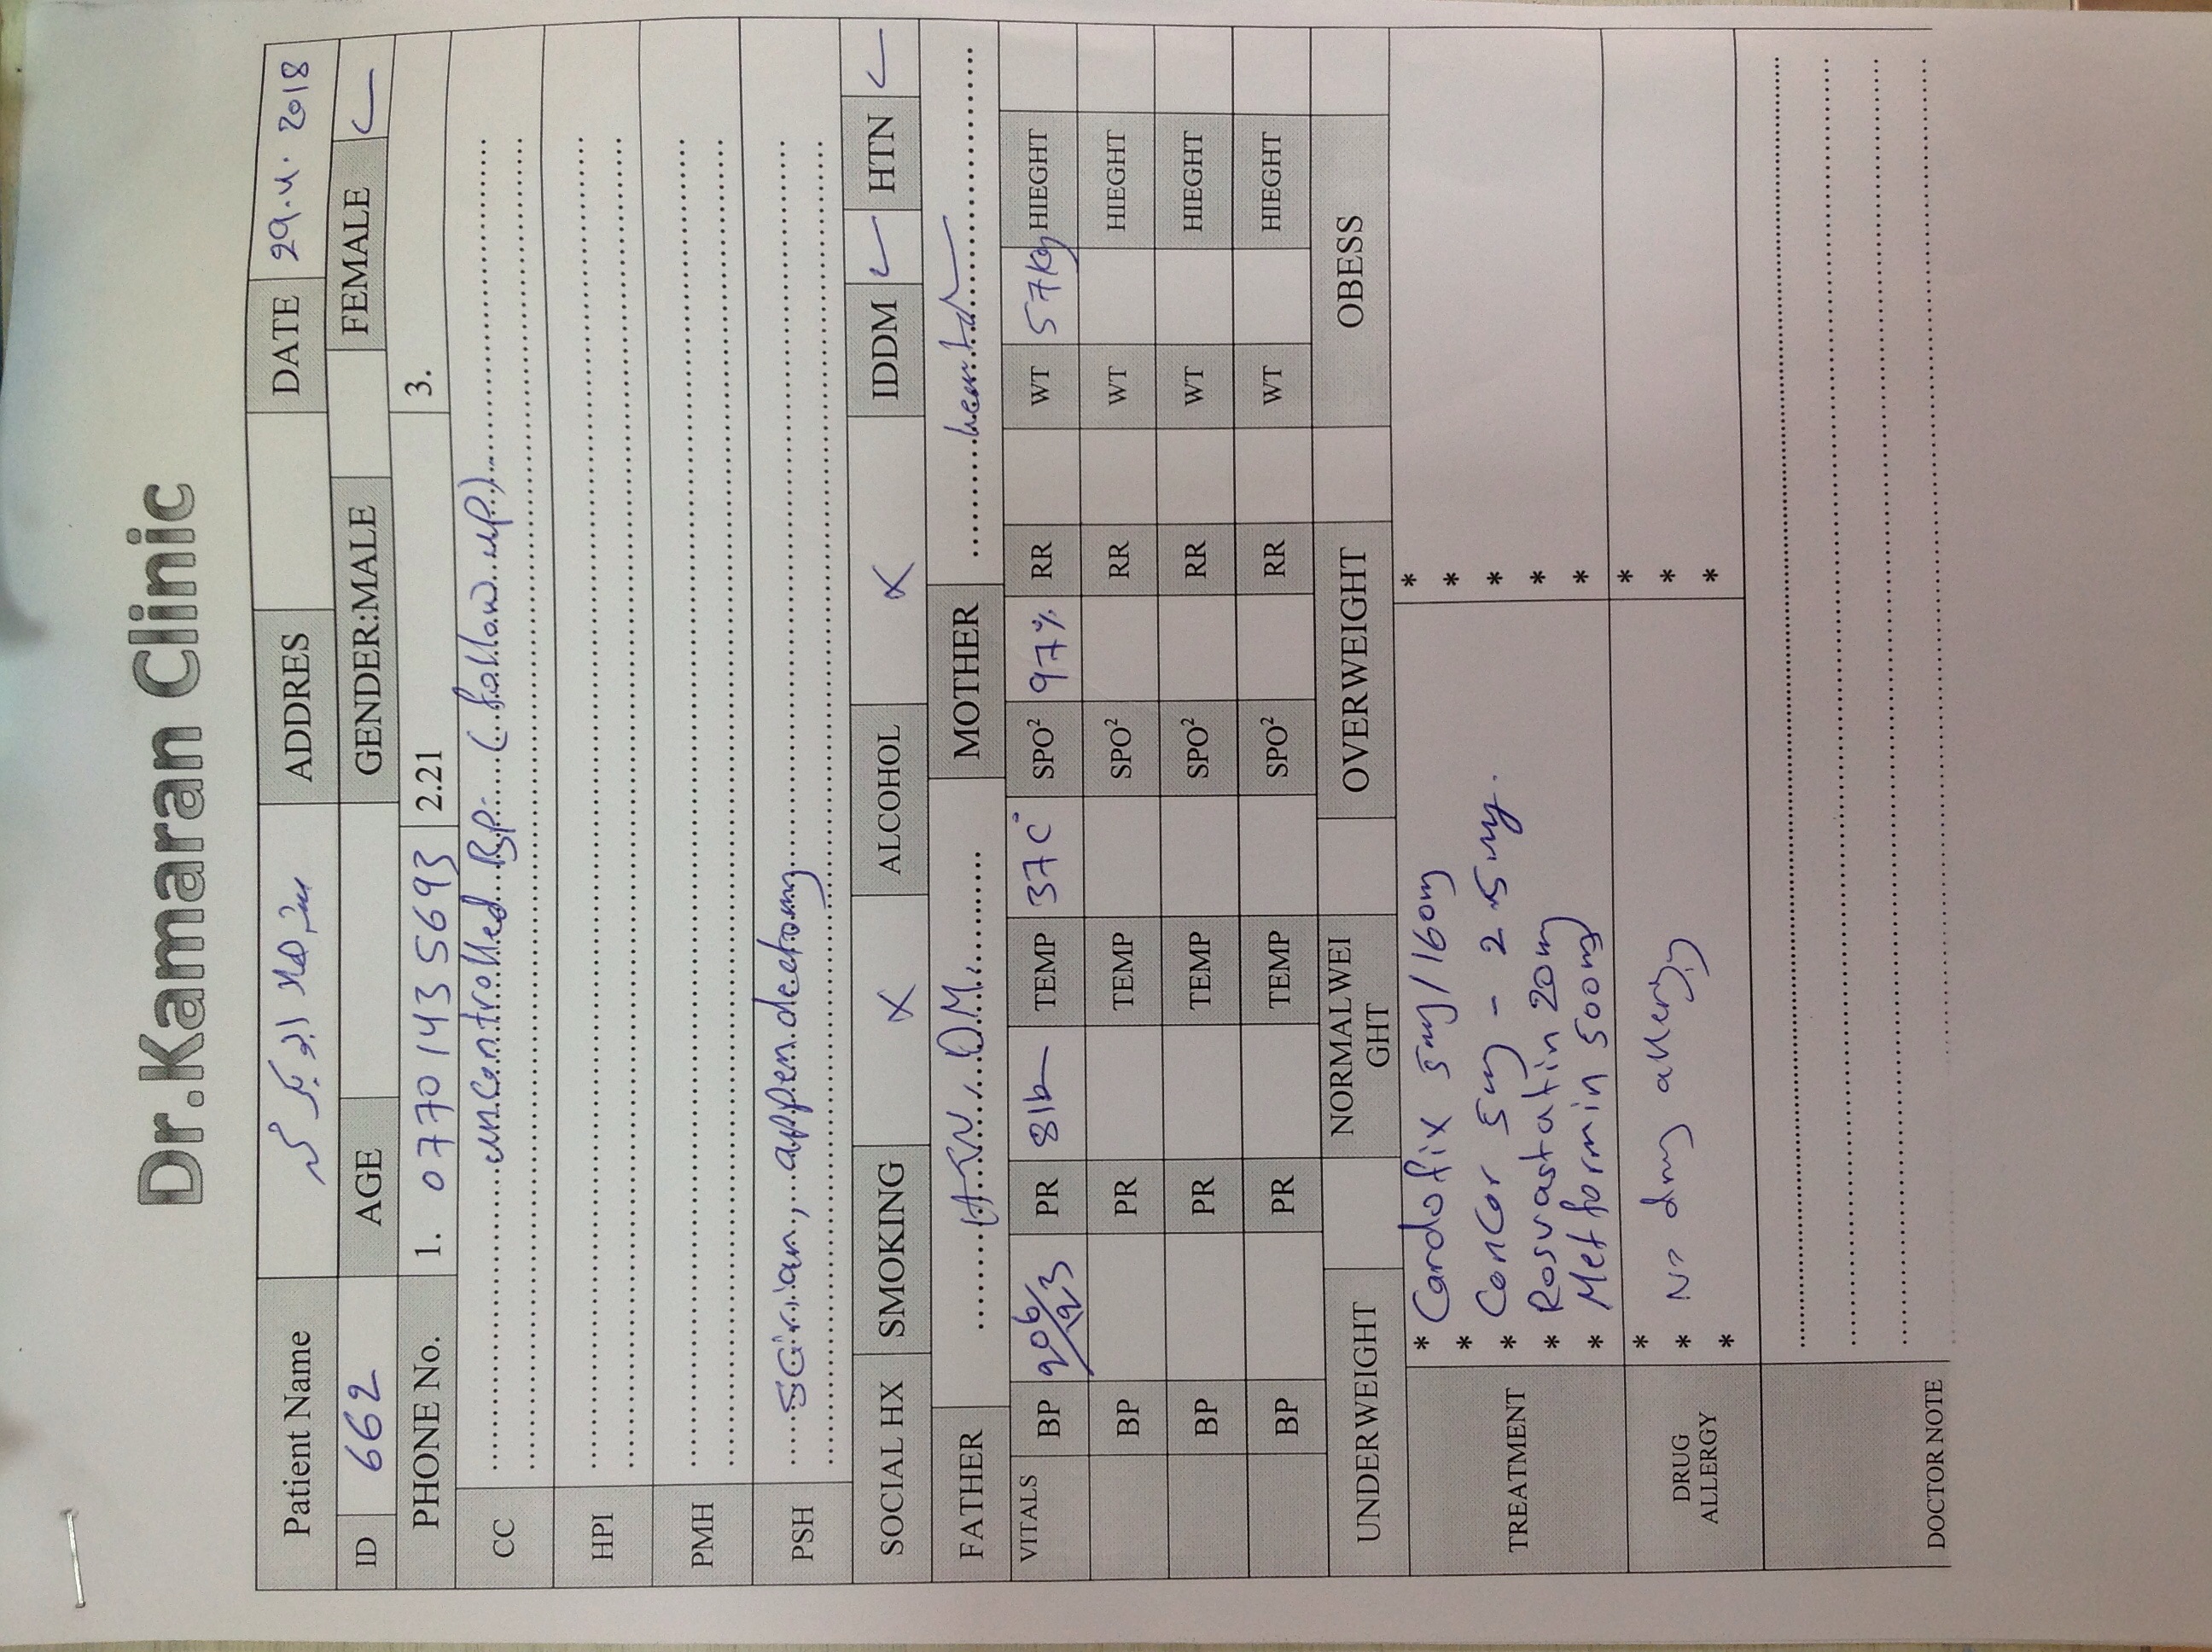 Dr.Kamaran Clinic
Patient Name ADDRES DATE 29.4.2018
ID 662 AGE GENDER:MALE FEMALE ✓
PHONE No. 1. 0770 143 5693 2.21 3.
CC uncontrolled BP. (follow up)
HPI
PMH
PSH appendectomy
SOCIAL HX SMOKING X ALCOHOL X IDDM ✓ HTN ✓
FATHER HTN, DM. MOTHER
VITALS BP PR 81b TEMP 37 C° SPO² 97% RR WT 57kg HIEGHT
BP PR TEMP SPO² RR WT HIEGHT
BP PR TEMP SPO² RR WT HIEGHT
BP PR TEMP SPO² RR WT HIEGHT
UNDERWEIGHT NORMALWEI
GHT OVERWEIGHT OBESS
TREATMENT
* Cardofix 5mg/160mg *
* *
* Concor 5mg - 2.5mg. *
* Rosuvastatin 20mg *
* Metformin 500mg *
DRUG
ALLERGY
* *
* No drug allergy *
* *
DOCTOR NOTE